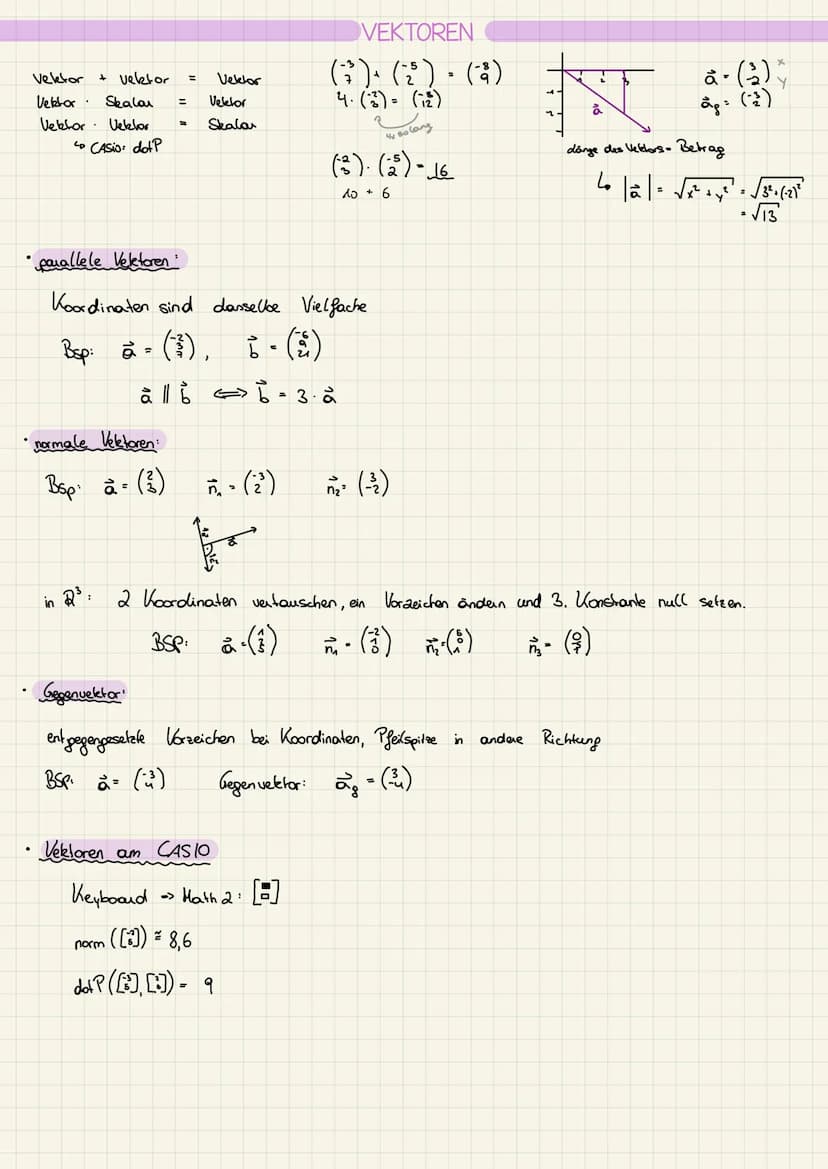 VEKTOREN
Vektor + Vektor = Vektor
Vektor · Skalar = Vektor
Vektor · Vektor = Skalar
↳ CASIO: dotP
(-3 7) + (-5 2) = (-8 9)
4 · (-2 3) = (-8 12)
4x so lang
(-2 3) · (-5 2) = 16
10 + 6
1 2 3
-1
-2
a⃗
a⃗ = (3 -2) x y
a⃗g = (-3 2)
Länge des Vektors = Betrag
↳ |a⃗| = √x² + y² = √3² + (-2)²
= √13
• parallele Vektoren:
Koordinaten sind dasselbe Vielfache
Bsp: a⃗ = (-2 3 7), b⃗ = (-6 9 21)
a⃗ || b⃗ ⟺ b⃗ = 3 · a⃗
• normale Vektoren:
Bsp: a⃗ = (2 3) n⃗₁ = (-3 2) n⃗₂ = (3 -2)
in ℝ³: 2 Koordinaten vertauschen, ein Vorzeichen ändern und 3. Konstante null setzen.
BSP: a⃗ = (1 2 5) n⃗₁ = (-2 1 0) n⃗₂ = n⃗₃ =
• Gegenvektor:
entgegengesetzte Vorzeichen bei Koordinaten, Pfeilspitze in andere Richtung
BSP: a⃗ = (-3 4) Gegenvektor: a⃗g = (3 -4)
• Vektoren am CASIO
Keyboard → Math 2:
norm ≅ 8,6
dotP = 9